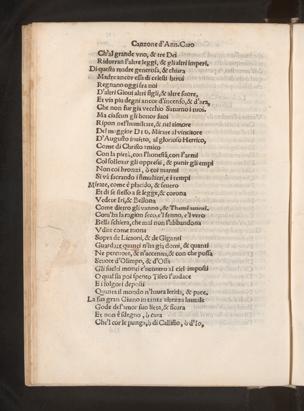 Canzone d'Ann. Caro
Ch'al grande vno, & tre Dei
Ridurran l'altre leggi, & gli altri imperi.
Di questa madre generosa, & chiara
Madre ancor essa di celesti heroi
Regnano oggi fra noi
D'altri Gioui altri figli, & altre suore,
Et vie piu degni ancor d'incenso, & d'ara,
Che non fur gia vecchio Saturno i tuoi.
Ma ciascun gli honor suoi
Ripon nell'humiltate, & nel timore
Del maggior DIO. Mirate al vincitore
D'Augusto inuitto, al glorioso Herrico,
Come di Christo amico
Con la pietà, con l'honestà, con l'armi
Col solleuar gli oppressi, & punir gli empi
Non coi bronzi, ò coi marmi
Si và sacrando i simulacri, e i tempi
Mirate, come è placido, & seuero
Et di se stesso a se legge, & corona
Vedete Iri, & Bellona
Come dietro gli vanno, & Themi
Com'ha la ragion seco, e'l senno, e'l vero
Bella schiera, che mai non l'abbandona
Vdite come
Sopra de Lioni, & de Giganti
Guardate quanti n'ha già domi, & quanti
Ne percuote, & n'accenna, & con che possa
Scuote d'Olimpo, & d'Ossa
Gli 'ncontro al ciel imposti
O qual fia poi spento Tifeo l'audace
Et i folgori deposti
Quanta il mondo n'haurà letitia, & pace.
La sua gran Giuno in tanta altezza humile
Gode dell'amor suo lieta, & sicura
Et non è sdegno, ò cura
Che'l cor le punga, ò di Callisto, ò d'Io,